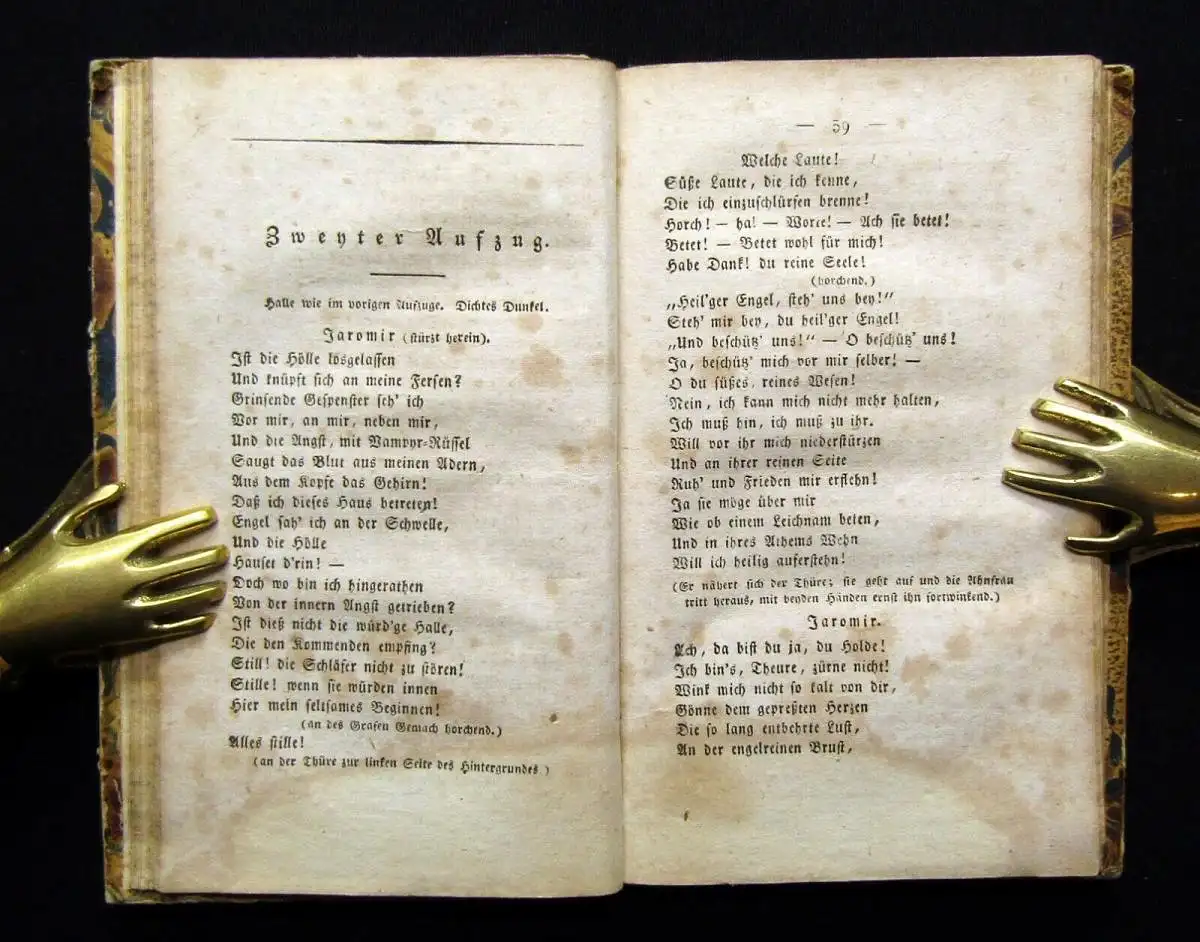 Zweyter Aufzug.
Halle wie im vorigen Aufzuge. Dichtes Dunkel.
Jaromir (stürzt herein).
Ist die Hölle losgelassen
Und knüpft sich an meine Fersen?
Grinsende Gespenster seh' ich
Vor mir, an mir, neben mir,
Und die Angst, mit Vampyr-Rüssel
Saugt das Blut aus meinen Adern,
Aus dem Kopfe das Gehirn!
Daß ich dieses Haus betreten!
Engel sah' ich an der Schwelle,
Und die Hölle
Hauset d'rin! —
Doch wo bin ich hingerathen
Von der innern Angst getrieben?
Ist dieß nicht die würd'ge Halle,
Die den Kommenden empfing?
Still! die Schläfer nicht zu stören!
Stille! wenn sie würden innen
Hier mein seltsames Beginnen!
(an des Grafen Gemach horchend.)
Alles stille!
(an der Thüre zur linken Seite des Hintergrundes)
— 59 —
Welche Laute!
Süße Laute, die ich kenne,
Die ich einzuschlürfen brenne!
Horch! — ha! — Worte! — Ach sie betet!
Betet! — Betet wohl für mich!
Habe Dank! du reine Seele!
(horchend.)
„Heil'ger Engel, steh' uns bey!"
Steh' mir bey, du heil'ger Engel!
„Und beschütz' uns!" — O beschütz' uns!
Ja, beschütz' mich vor mir selber! —
O du süßes, reines Wesen!
Nein, ich kann mich nicht mehr halten,
Ich muß hin, ich muß zu ihr.
Will vor ihr mich niederstürzen
Und an ihrer reinen Seite
Ruh' und Frieden mir erflehn!
Ja sie möge über mir
Wie ob einem Leichnam beten,
Und in ihres Athems Wehn
Will ich heilig auferstehn!
(Er nähert sich der Thüre; sie geht auf und die Ahnfrau
tritt heraus, mit beyden Händen ernst ihn fortwinkend.)
Jaromir.
Ach, da bist du ja, du Holde!
Ich bin's, Theure, zürne nicht!
Wink mich nicht so kalt von dir,
Gönne dem gepreßten Herzen
Die so lang entbehrte Lust,
An der engelreinen Brust,